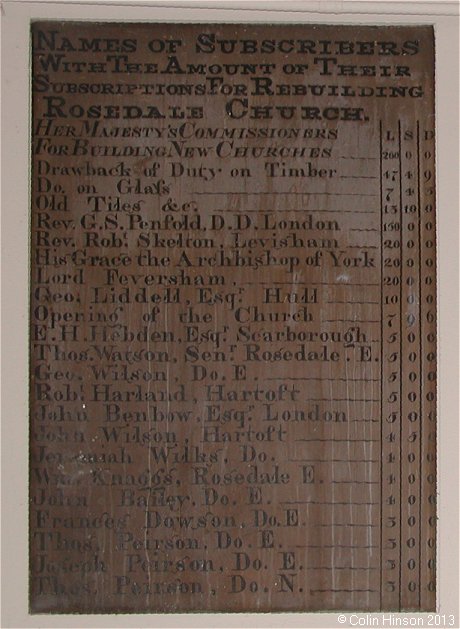 NAMES OF SUBSCRIBERS
WITH THE AMOUNT OF THEIR
SUBSCRIPTIONS FOR REBUILDING
ROSEDALE CHURCH.
HER MAJESTY'S COMMISSIONERS L S D
FOR BUILDING NEW CHURCHES 200 0 0
Drawback of Duty on Timber 47 4 9
Do. on Glass 7 4 5
Old Tiles &c. 13 10 0
Rev. G.S. Penfold, D.D. London 150 0 0
Rev. Robt. Skelton, Levisham 20 0 0
His Grace the Archbishop of York 20 0 0
Lord Feversham, 20 0 0
Geo. Liddell, Esqr. Hull 10 0 0
Opening of the Church 7 9 6
E.H. Hebden, Esqr. Scarborough 5 0 0
Thos. Watson, Senr. Rosedale. E. 5 0 0
Geo. Wilson, Do. E. 5 0 0
Robt. Harland, Hartoft 5 0 0
John Benbow, Esqr. London 5 0 0
John Wilson, Hartoft 4 5 0
Jeremiah Wilks, Do. 4 0 0
Wm. Knaggs, Rosedale E. 4 0 0
John Bailey, Do. E. 4 0 0
Frances Dowson, Do. E. 3 0 0
Thos. Peirson, Do. E. 3 0 0
Joseph Peirson, Do. E. 3 0 0
Thos. Peirson, Do. N. 3 0 0
©Colin Hinson 2013